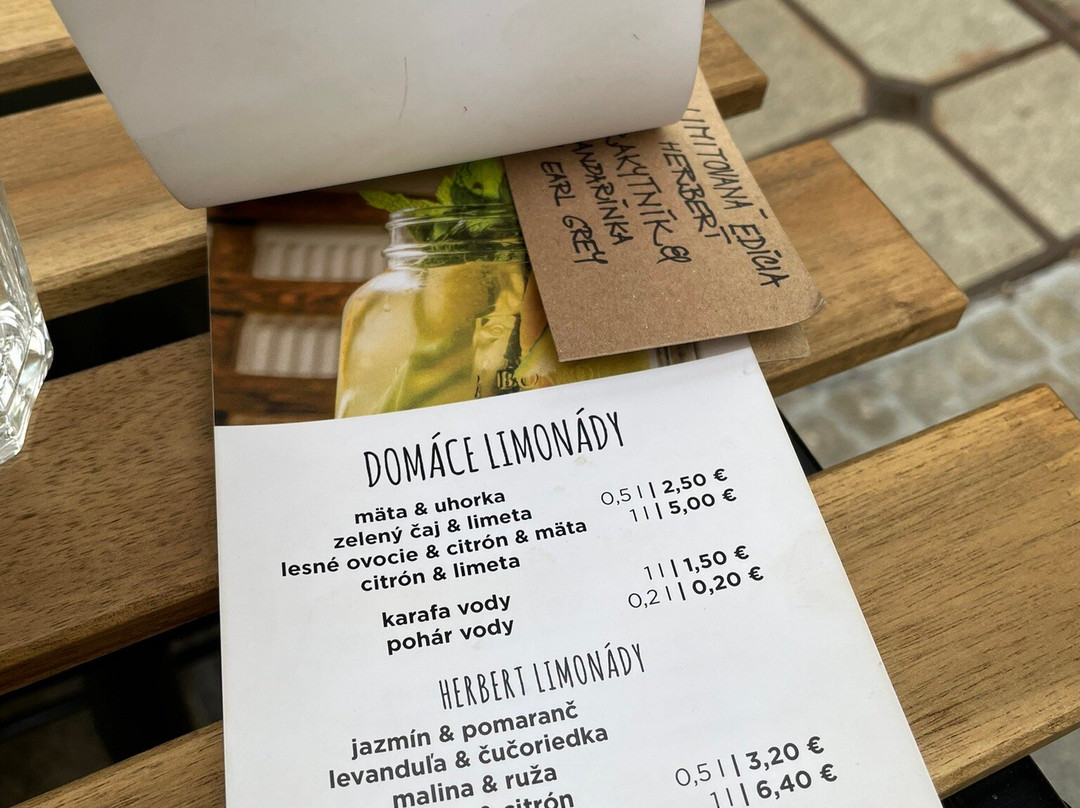 LIMITOVANÁ EDÍCIA
HERBERT
RAKYTNÍK &
MANDARÍNKA
EARL GREY
DOMÁCE LIMONÁDY
mäta & uhorka
zelený čaj & limeta
lesné ovocie & citrón & mäta
citrón & limeta
0,5 l | 2,50 €
1 l | 5,00 €
karafa vody
pohár vody
1 l | 1,50 €
0,2 l | 0,20 €
HERBERT LIMONÁDY
jazmín & pomaranč
levanduľa & čučoriedka
malina & ruža
& citrón
0,5 l | 3,20 €
1 l | 6,40 €